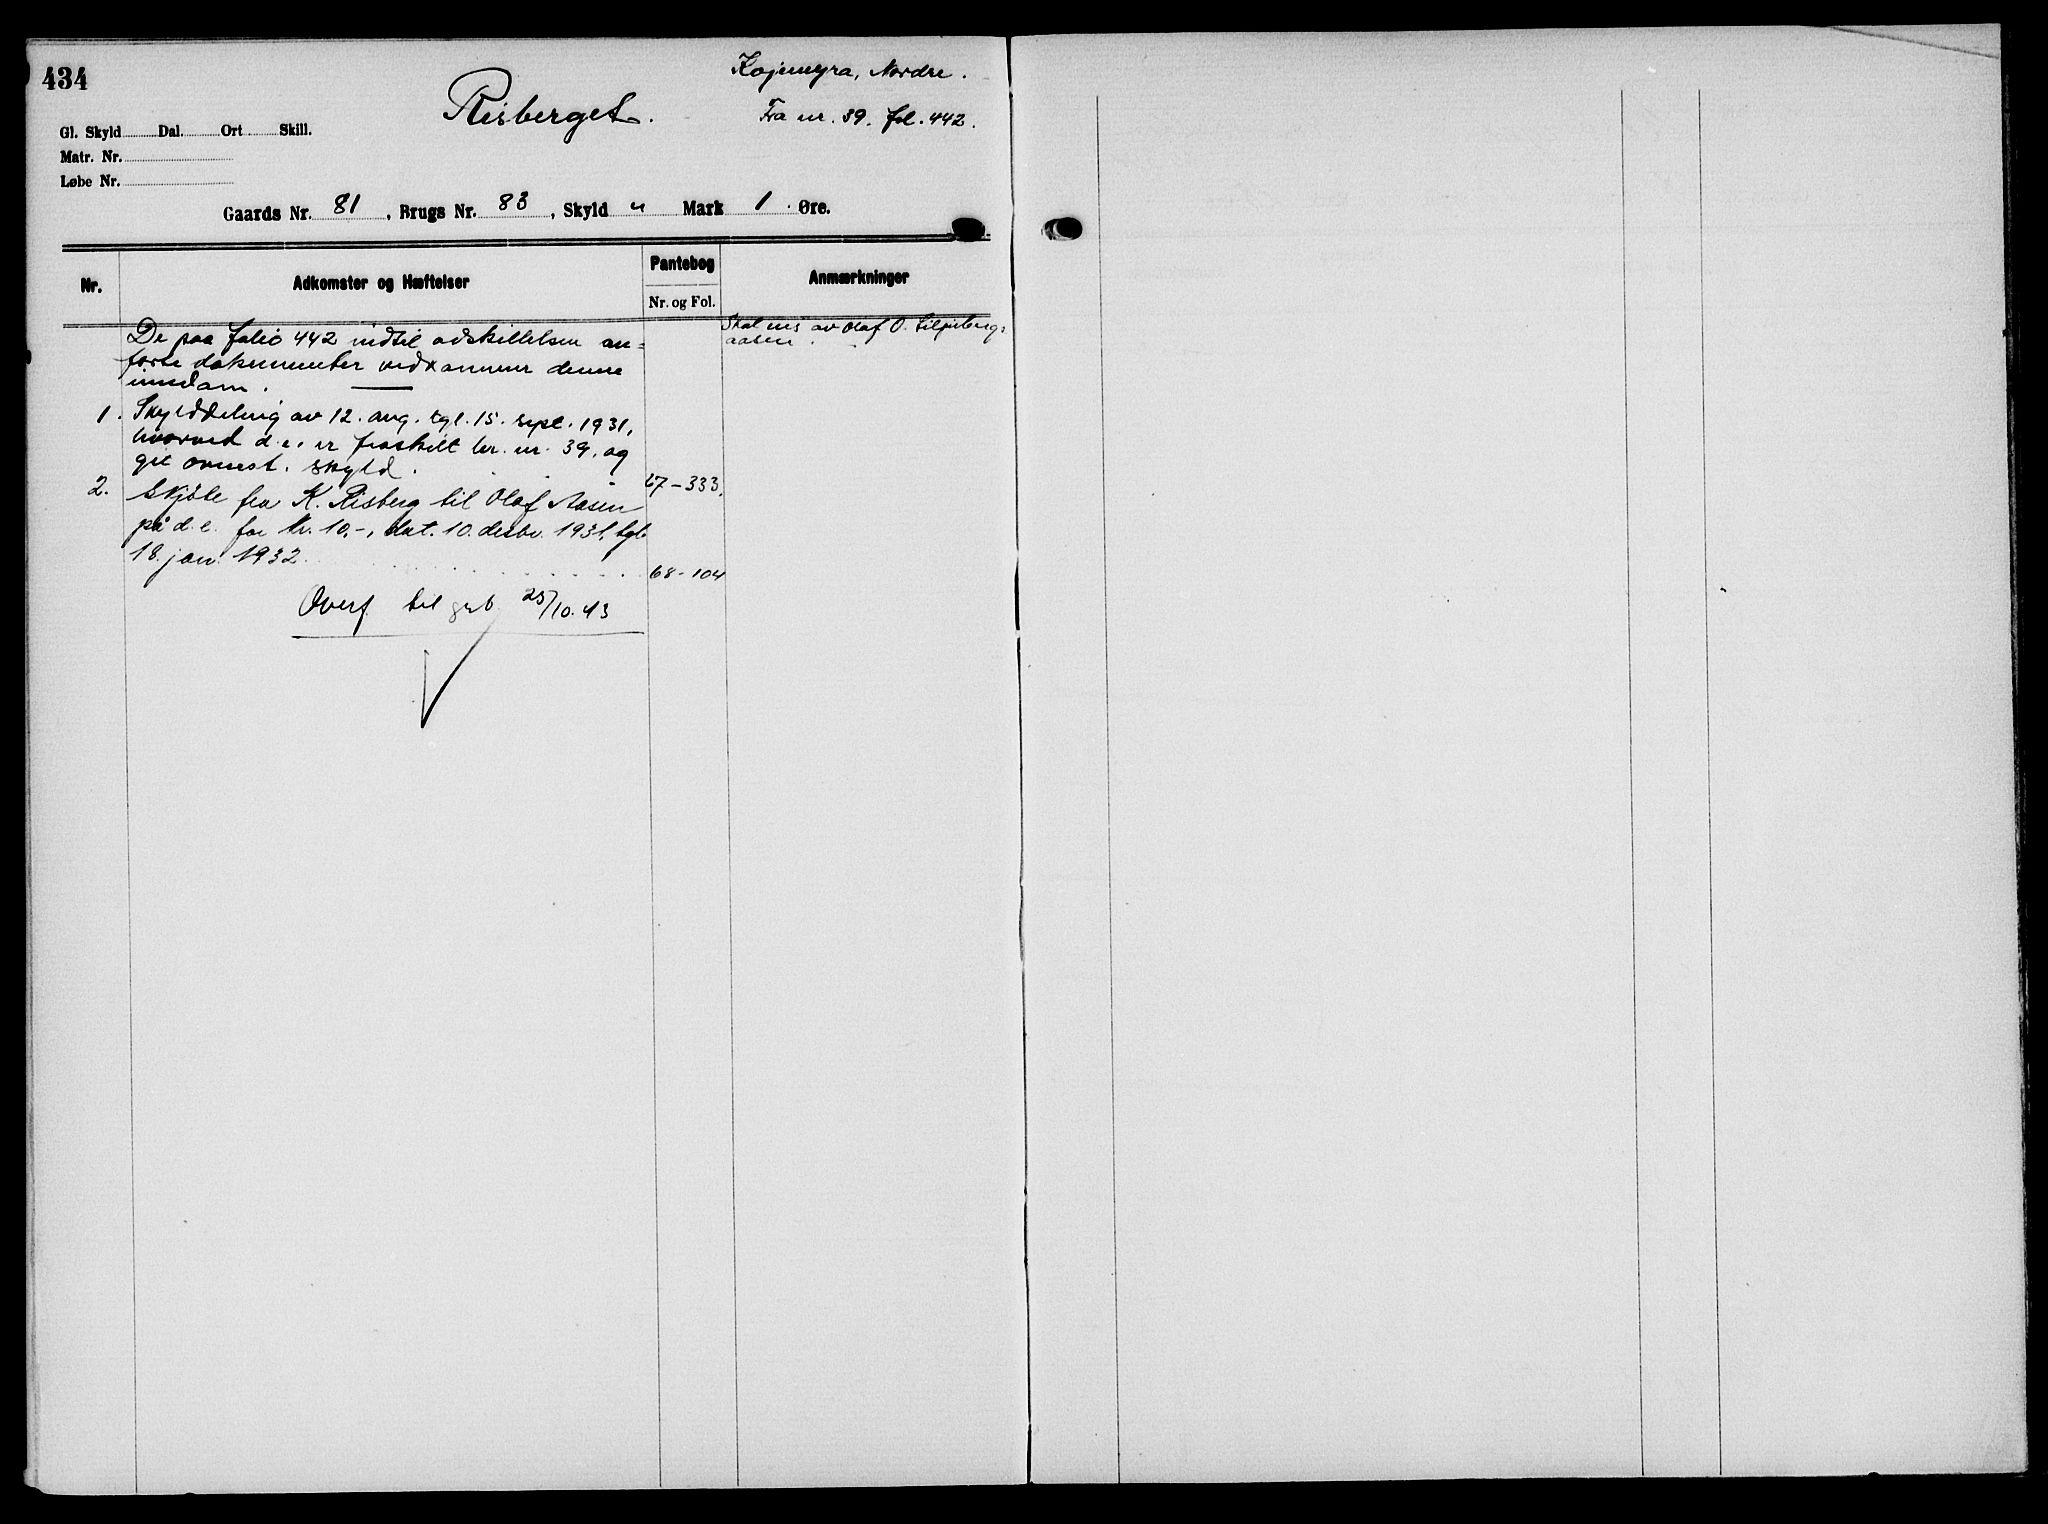 434
Risberget.
Kojemyra, Nordre.
Fra nr. 39. fol. 442.
Gl. Skyld Dal. Ort Skill.
Matr. Nr.
Løbe Nr.
Gaards Nr. 81, Brugs Nr. 83, Skyld " Mark 1 Øre.
Nr.
Adkomster og Hæftelser
Pantebog
Nr. og Fol.
Anmærkninger
De paa folio 442 indtil adskillelsen an=
førte dokumenter vedk
eiendom.
Skal eies av Olaf O.
aasen.
1. Skylddeling av 12. aug. tgl. 15. sept. 1931,
hvorved d.e. er fraskilt br. nr. 39. og
git ovnest. skyld. 67-333.
2. Skjöte fra K. Risberg til Olaf Aasen
på d.e. for kr. 10.-, dat. 10. desbr. 1931, tgl.
18. jan. 1932 68-104
Overf. til grb 25/10.43